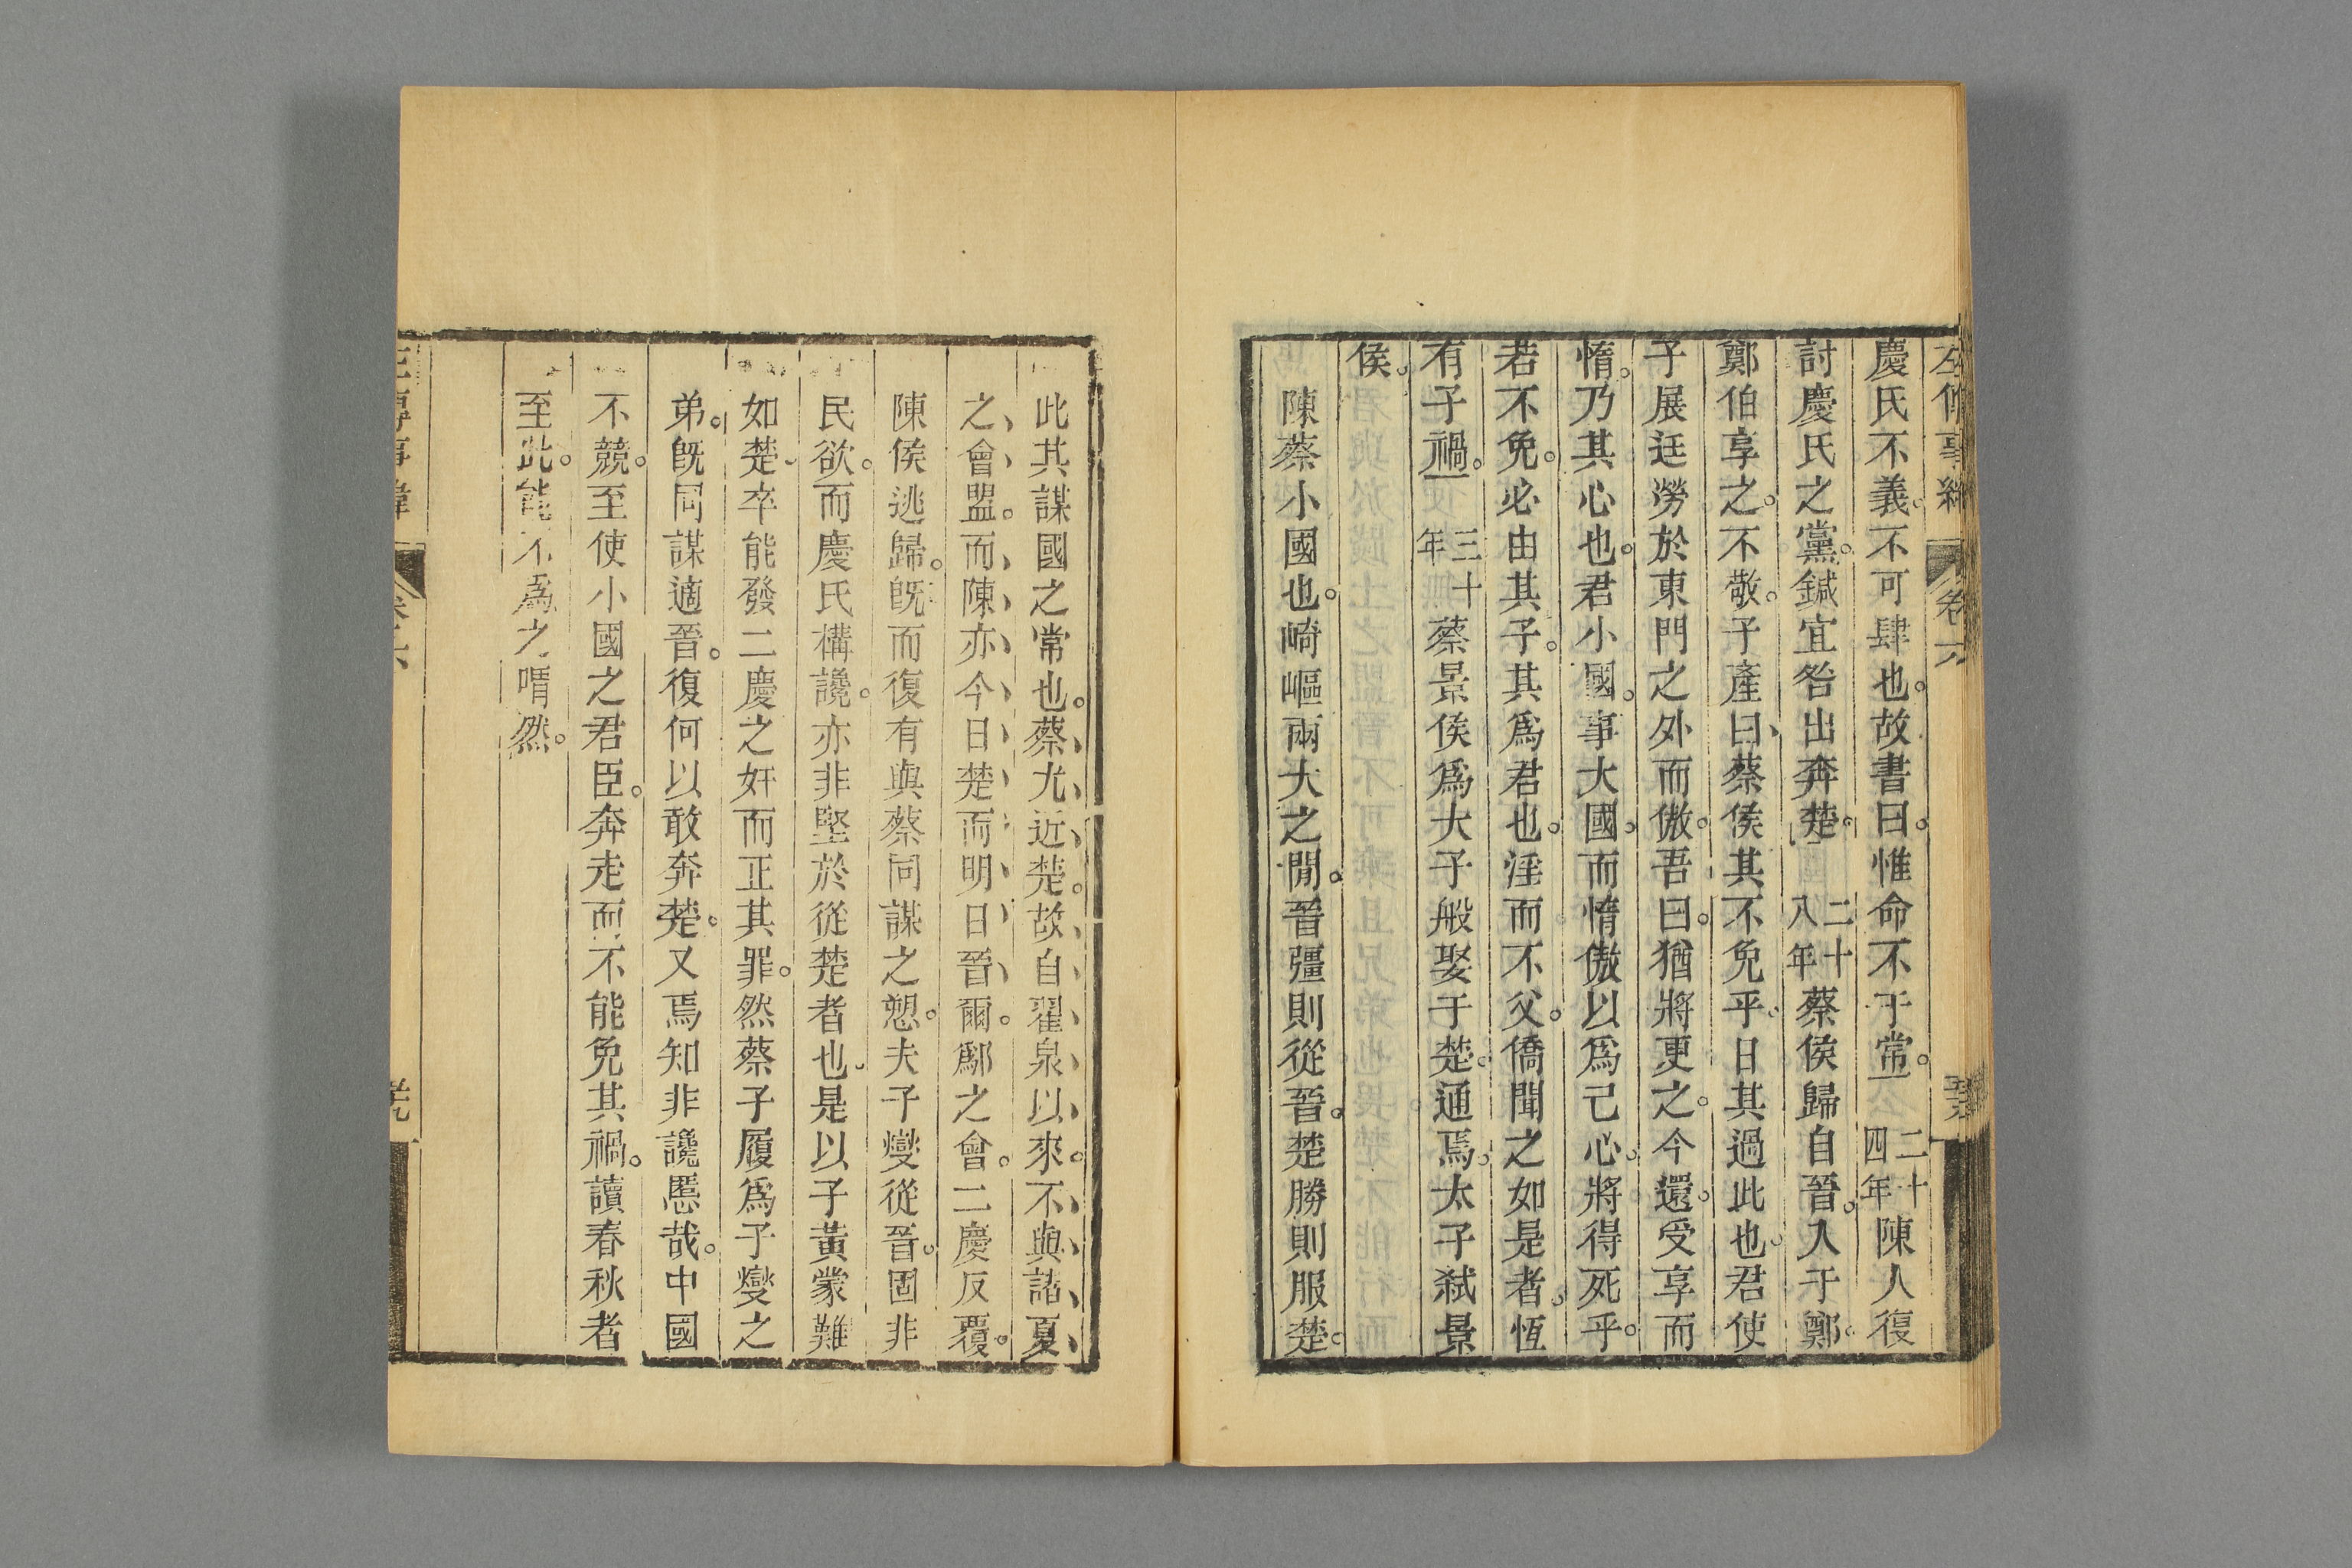 慶氏不義。不可肆也。故書曰。惟命不于常。二十四年陳人復
討慶氏之黨。鍼宜咎出奔楚。二十八年蔡侯歸自晉。入于鄭。
鄭伯享之。不敬。子產曰、蔡侯其不免乎。日其過此也。君使
子展廷勞於東門之外而傲。吾曰。猶將更之。今還。受享而
惰。乃其心也。君小國。事大國。而惰傲以爲己心。將得死乎。
若不免。必由其子。其爲君也。淫而不父。僑聞之如是者。恆
有子禍。三十年蔡景侯爲大子般娶于楚。通焉。太子弒景
侯。
陳蔡小國也。崎嶇兩大之閒。晉彊則從晉。楚勝則服楚。
此其謀國之常也。蔡尤近楚。故自翟泉以來。不與諸夏
之會盟。而陳亦今日楚而明日晉爾。鄬之會。二慶反覆。
陳侯逃歸。旣而復有與蔡同謀之愬。夫子燮從晉。固非
民欲。而慶氏構讒。亦非堅於從楚者也。是以子黃蒙難
如楚。卒能發二慶之奸而正其罪。然蔡子履爲子燮之
弟。旣同謀適晉。復何以敢奔楚。又焉知非讒慝哉。中國
不競。至使小國之君臣。奔走而不能免其禍。讀春秋者
至此。能不爲之喟然。